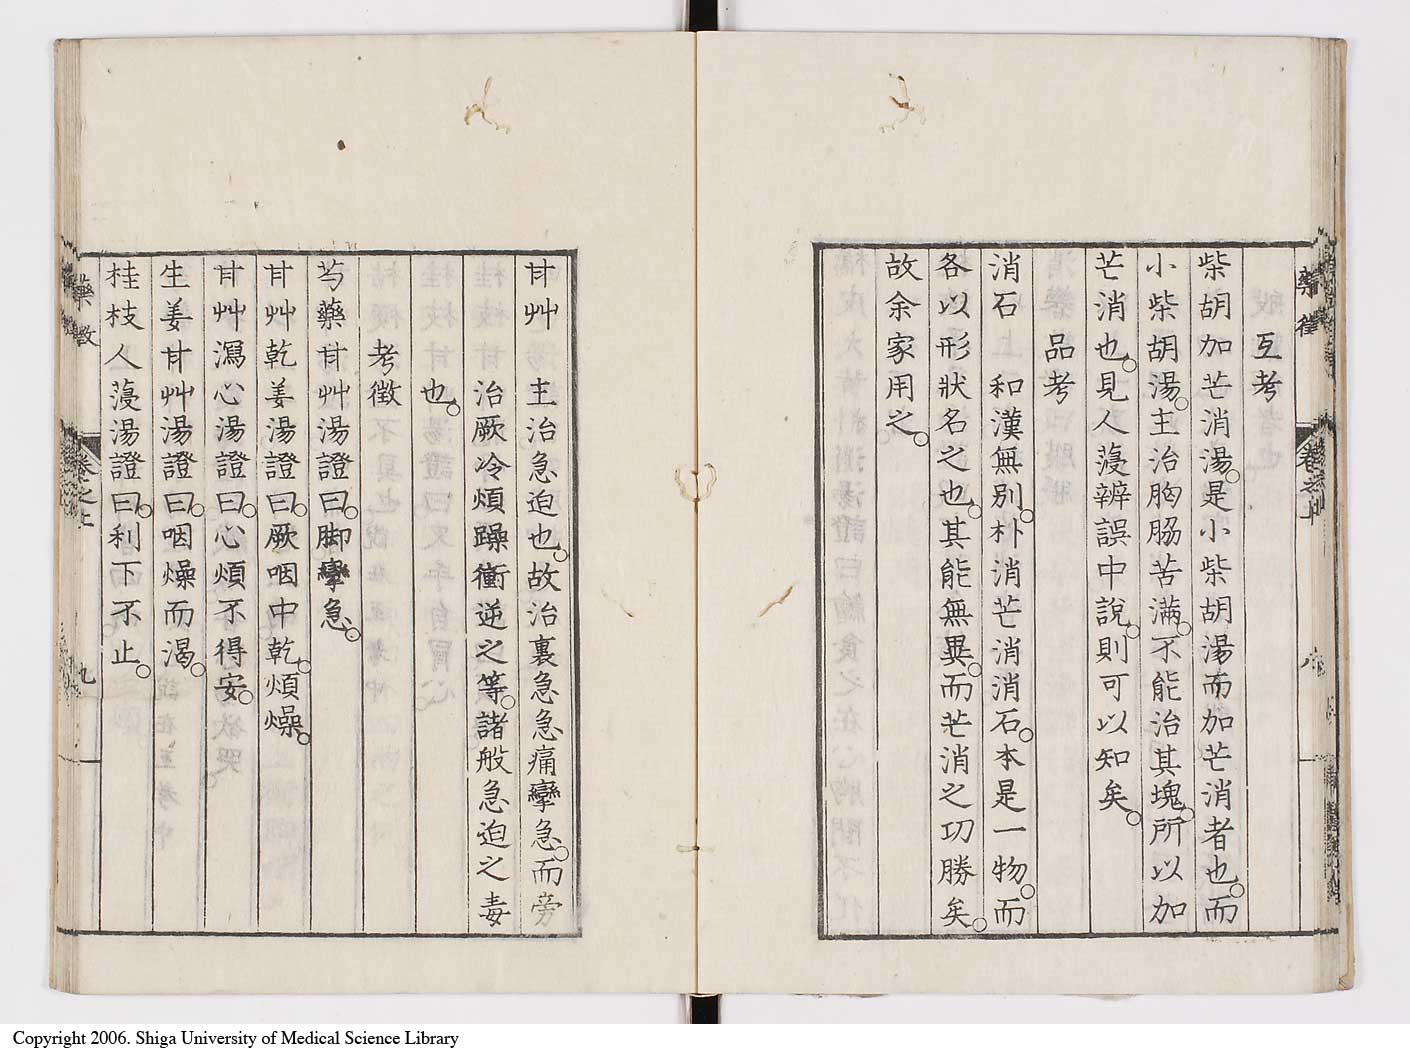 互考
柴胡加芒消湯。是小柴胡湯而加芒消者也。而
小柴胡湯。主治胸脇苦滿。不能治其塊。所以加
芒消也。見人蓡辨誤中說。則可以知矣。
品考
消石　和漢無別。朴消芒消消石。本是一物。而
各以形狀名之也。其能無異。而芒消之功勝矣。
故余家用之。
甘艸　主治急迫也。故治裏急急痛攣急。而旁
治厥冷煩躁衝逆之等。諸般急迫之毒
也。
考徵
芍藥甘艸湯證曰。脚攣急。
甘艸乾姜湯證曰。厥咽中乾。煩燥。
甘艸瀉心湯證曰。心煩不得安。
生姜甘艸湯證曰。咽燥而渴。
桂枝人蓡湯證曰。利下不止。
藥徵
卷之上
八
藥徵
卷之上
九
Copyright 2006. Shiga University of Medical Science Library